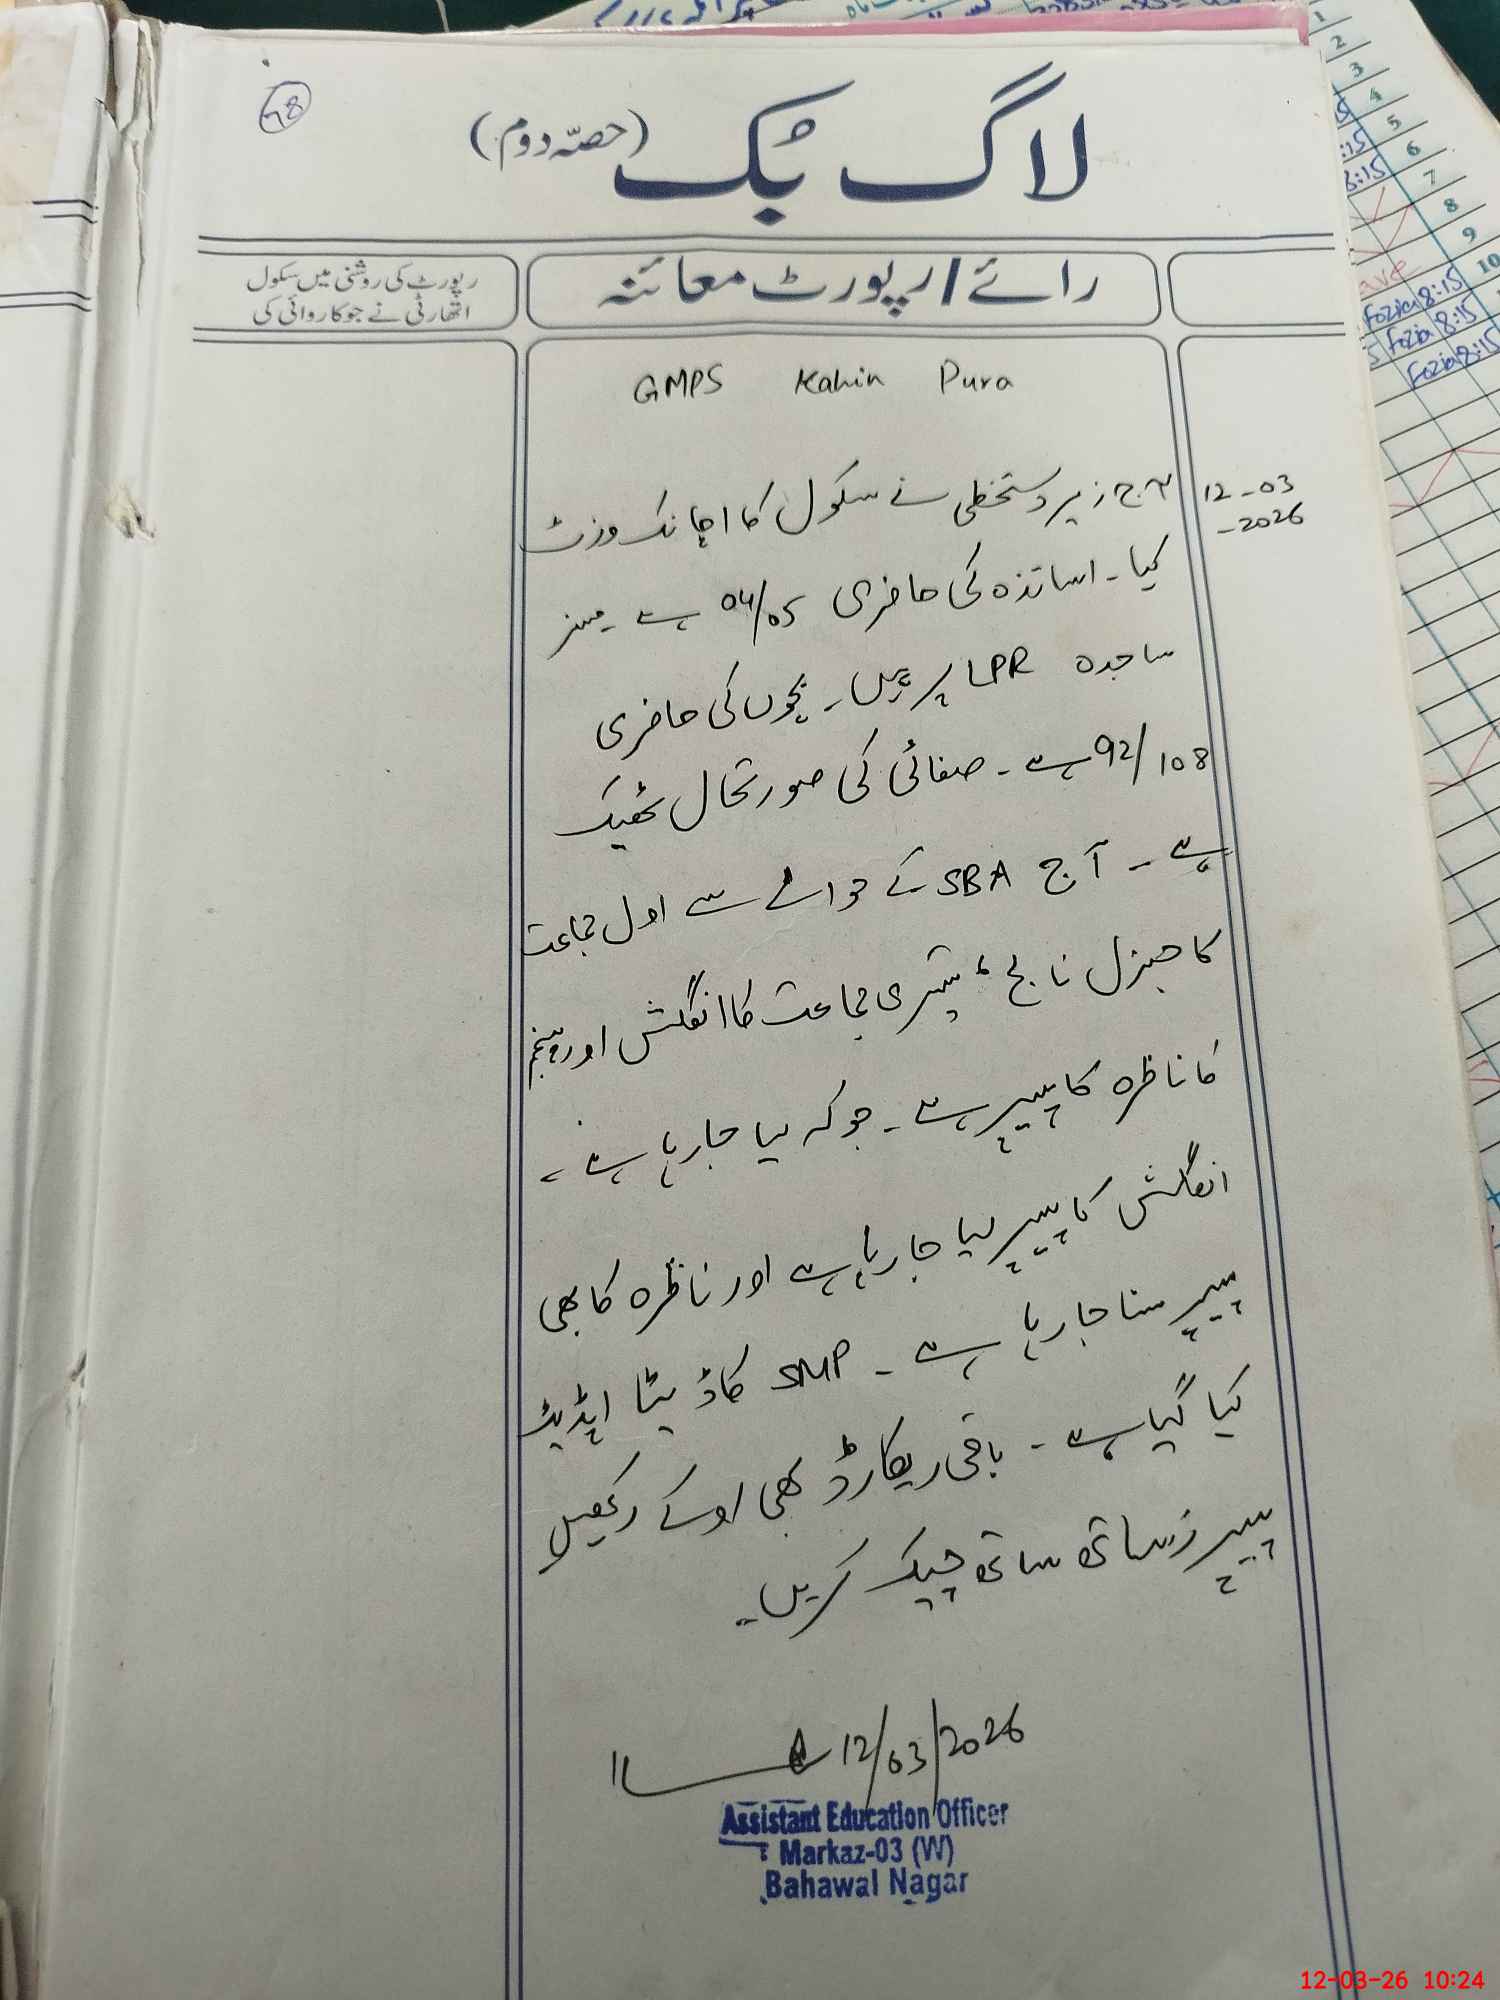 78
لاگ بک (حصّہ دوم)
رائے / رپورٹ معائنہ
رپورٹ کی روشنی میں سکول
اتھارٹی نے جو کاروائی کی
GMPS Kahin Pura
12-03
-2026
آج زیر دستخطی نے سکول کا اچانک وزٹ
کیا۔ اساتذہ کی حاضری 04/05 ہے مسز
ساجدہ LPR پر ہیں۔ بچوں کی حاضری
92/108 ہے۔ صفائی کی صورتحال ٹھیک
ہے۔ آج SBA کے حوالے سے اول جماعت
کا جنرل نالج، تیسری جماعت کا انگلش اور پنجم
کا ناظرہ کا پیپر ہے۔ جو کہ لیا جا رہا ہے۔
انگلش کا پیپر لیا جا رہا ہے اور ناظرہ کا بھی
پیپر سنا جا رہا ہے۔ SMP کا ڈیٹا اپڈیٹ
کیا گیا ہے۔ باقی ریکارڈ بھی اوکے رکھیں
پیپرز ساتھ ساتھ چیک کریں۔
12/03/2026
Assistant Education Officer
Markaz-03 (W)
Bahawal Nagar
1
2
3
4
5
6
7
8
9
10
Fozia 8:15
Fozia 8:15
Fozia 8:15
12-03-26 10:24